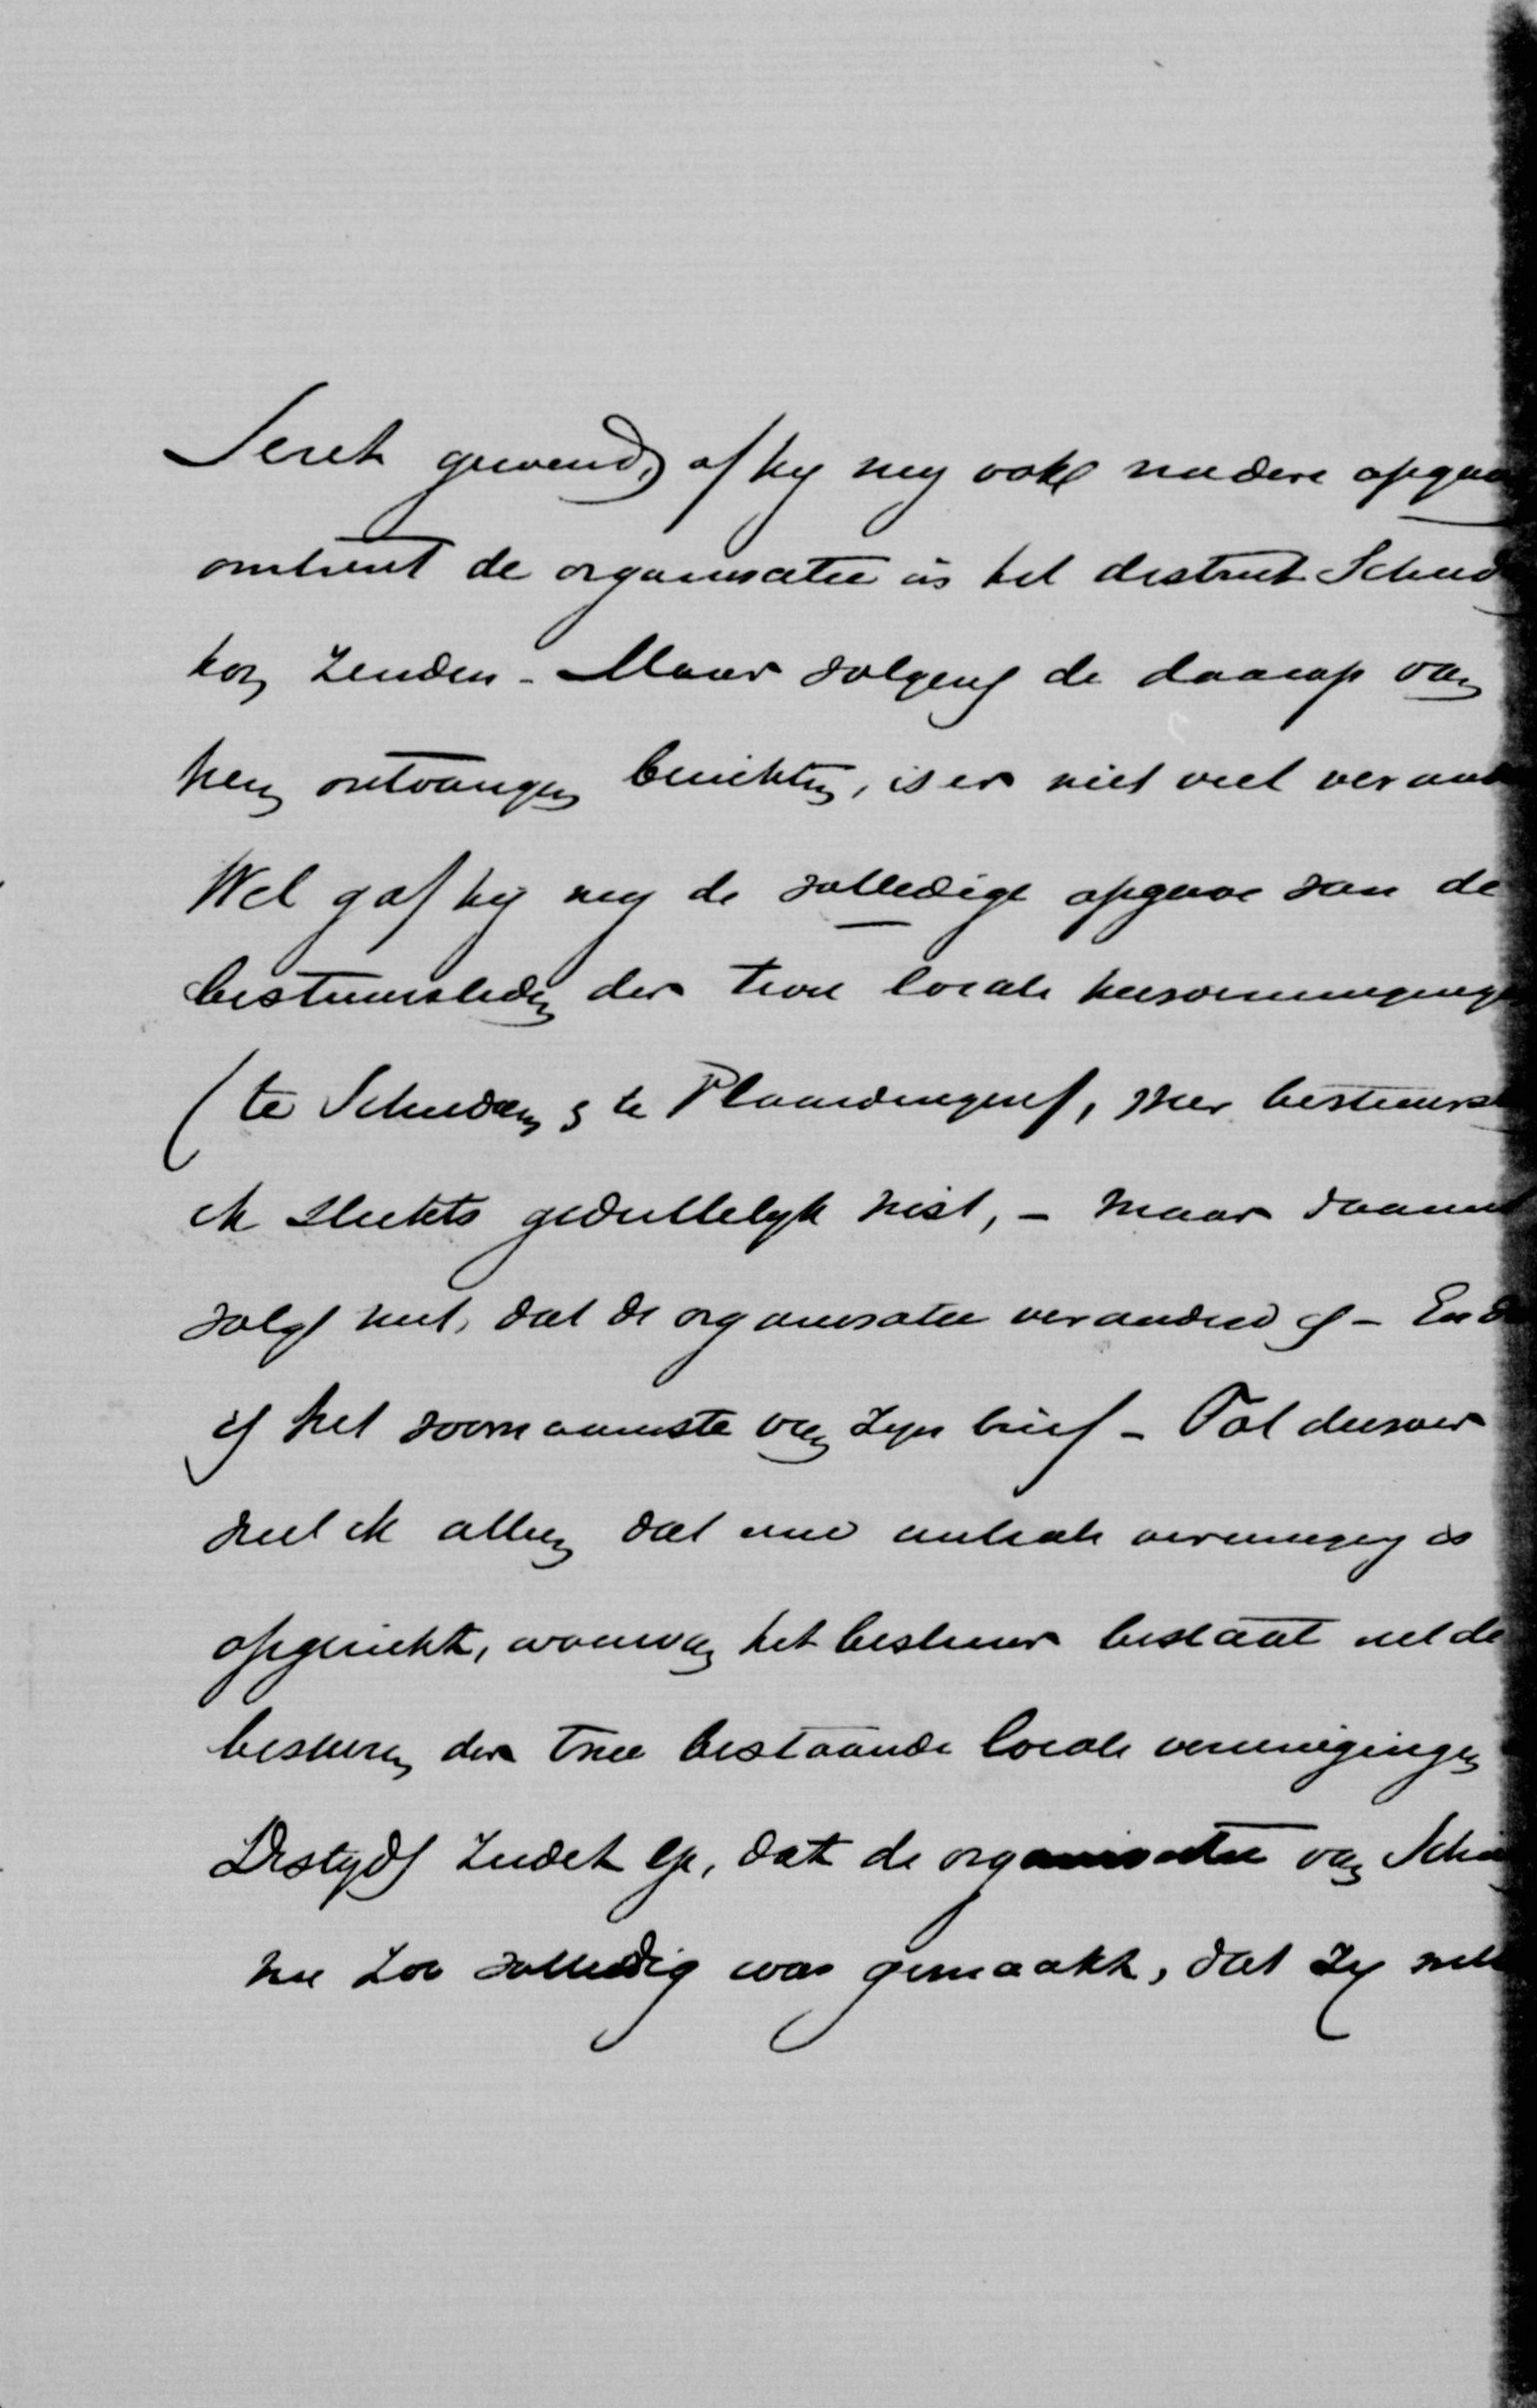 gewend, of hy my ook nadere opgav
omtrent de organisatie in het district Schied
kon zenden - Maar volgens de daarop van
hem ontvangen berichten, is er niet veel verand
Wel gaf hy my de volledige opgave van de
bestuursleden der twee locale kiesvereenigingen
(te Schiedam & te Vlaardingen), wier bestuursl
ik slechts gedeeltelyk wist, - maar daaruit
volgt niet, dat de organisatie veranderd is - En d
is het voornaamste van zyn brief - Tot dusver
hield ik alleen dat eene centrale vereeniging is
opgericht, waarvan het bestuur bestaat uit de
besturen der twee bestaande locale vereenigingen
Destyds meldet gy, dat de organisatie van Schie
nu zoo volledig was gemaakt, dat zy